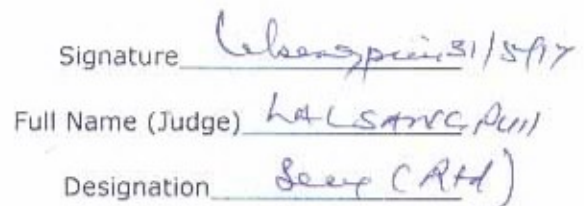 Signature Lalsangpuii 31/5/17
Full Name (Judge) LALSANGPUII
Designation (Rtd)